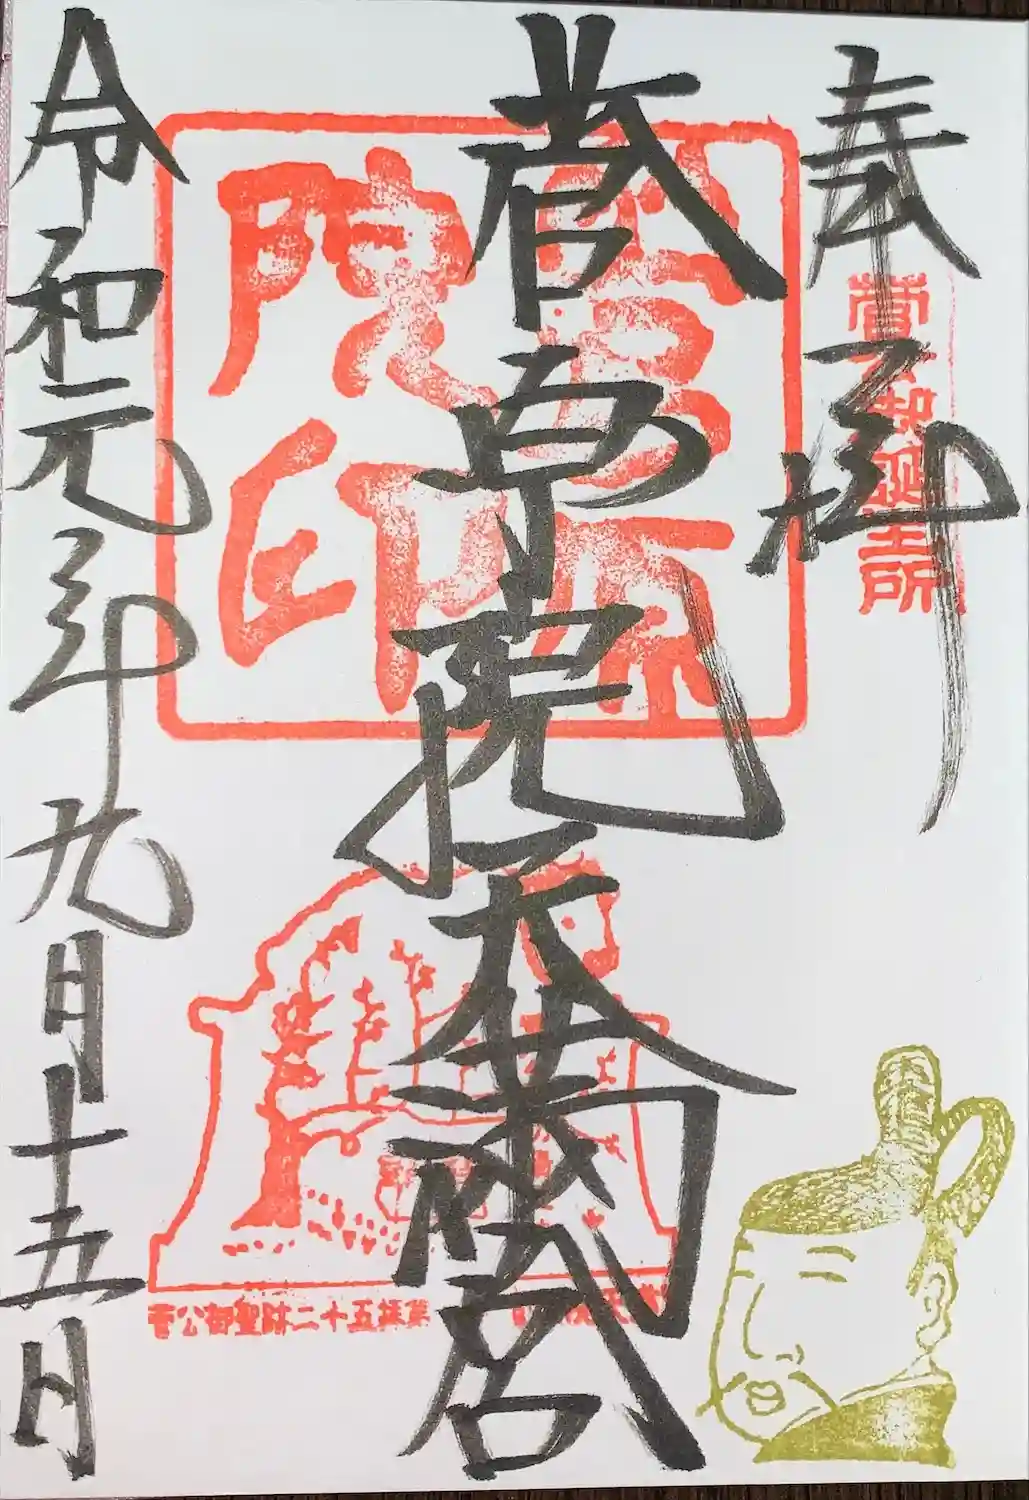 奉拝
菅公御誕生所
菅原院天満宮
菅原
院印
菅公御聖跡二十五拝第
令和元年九月十五日